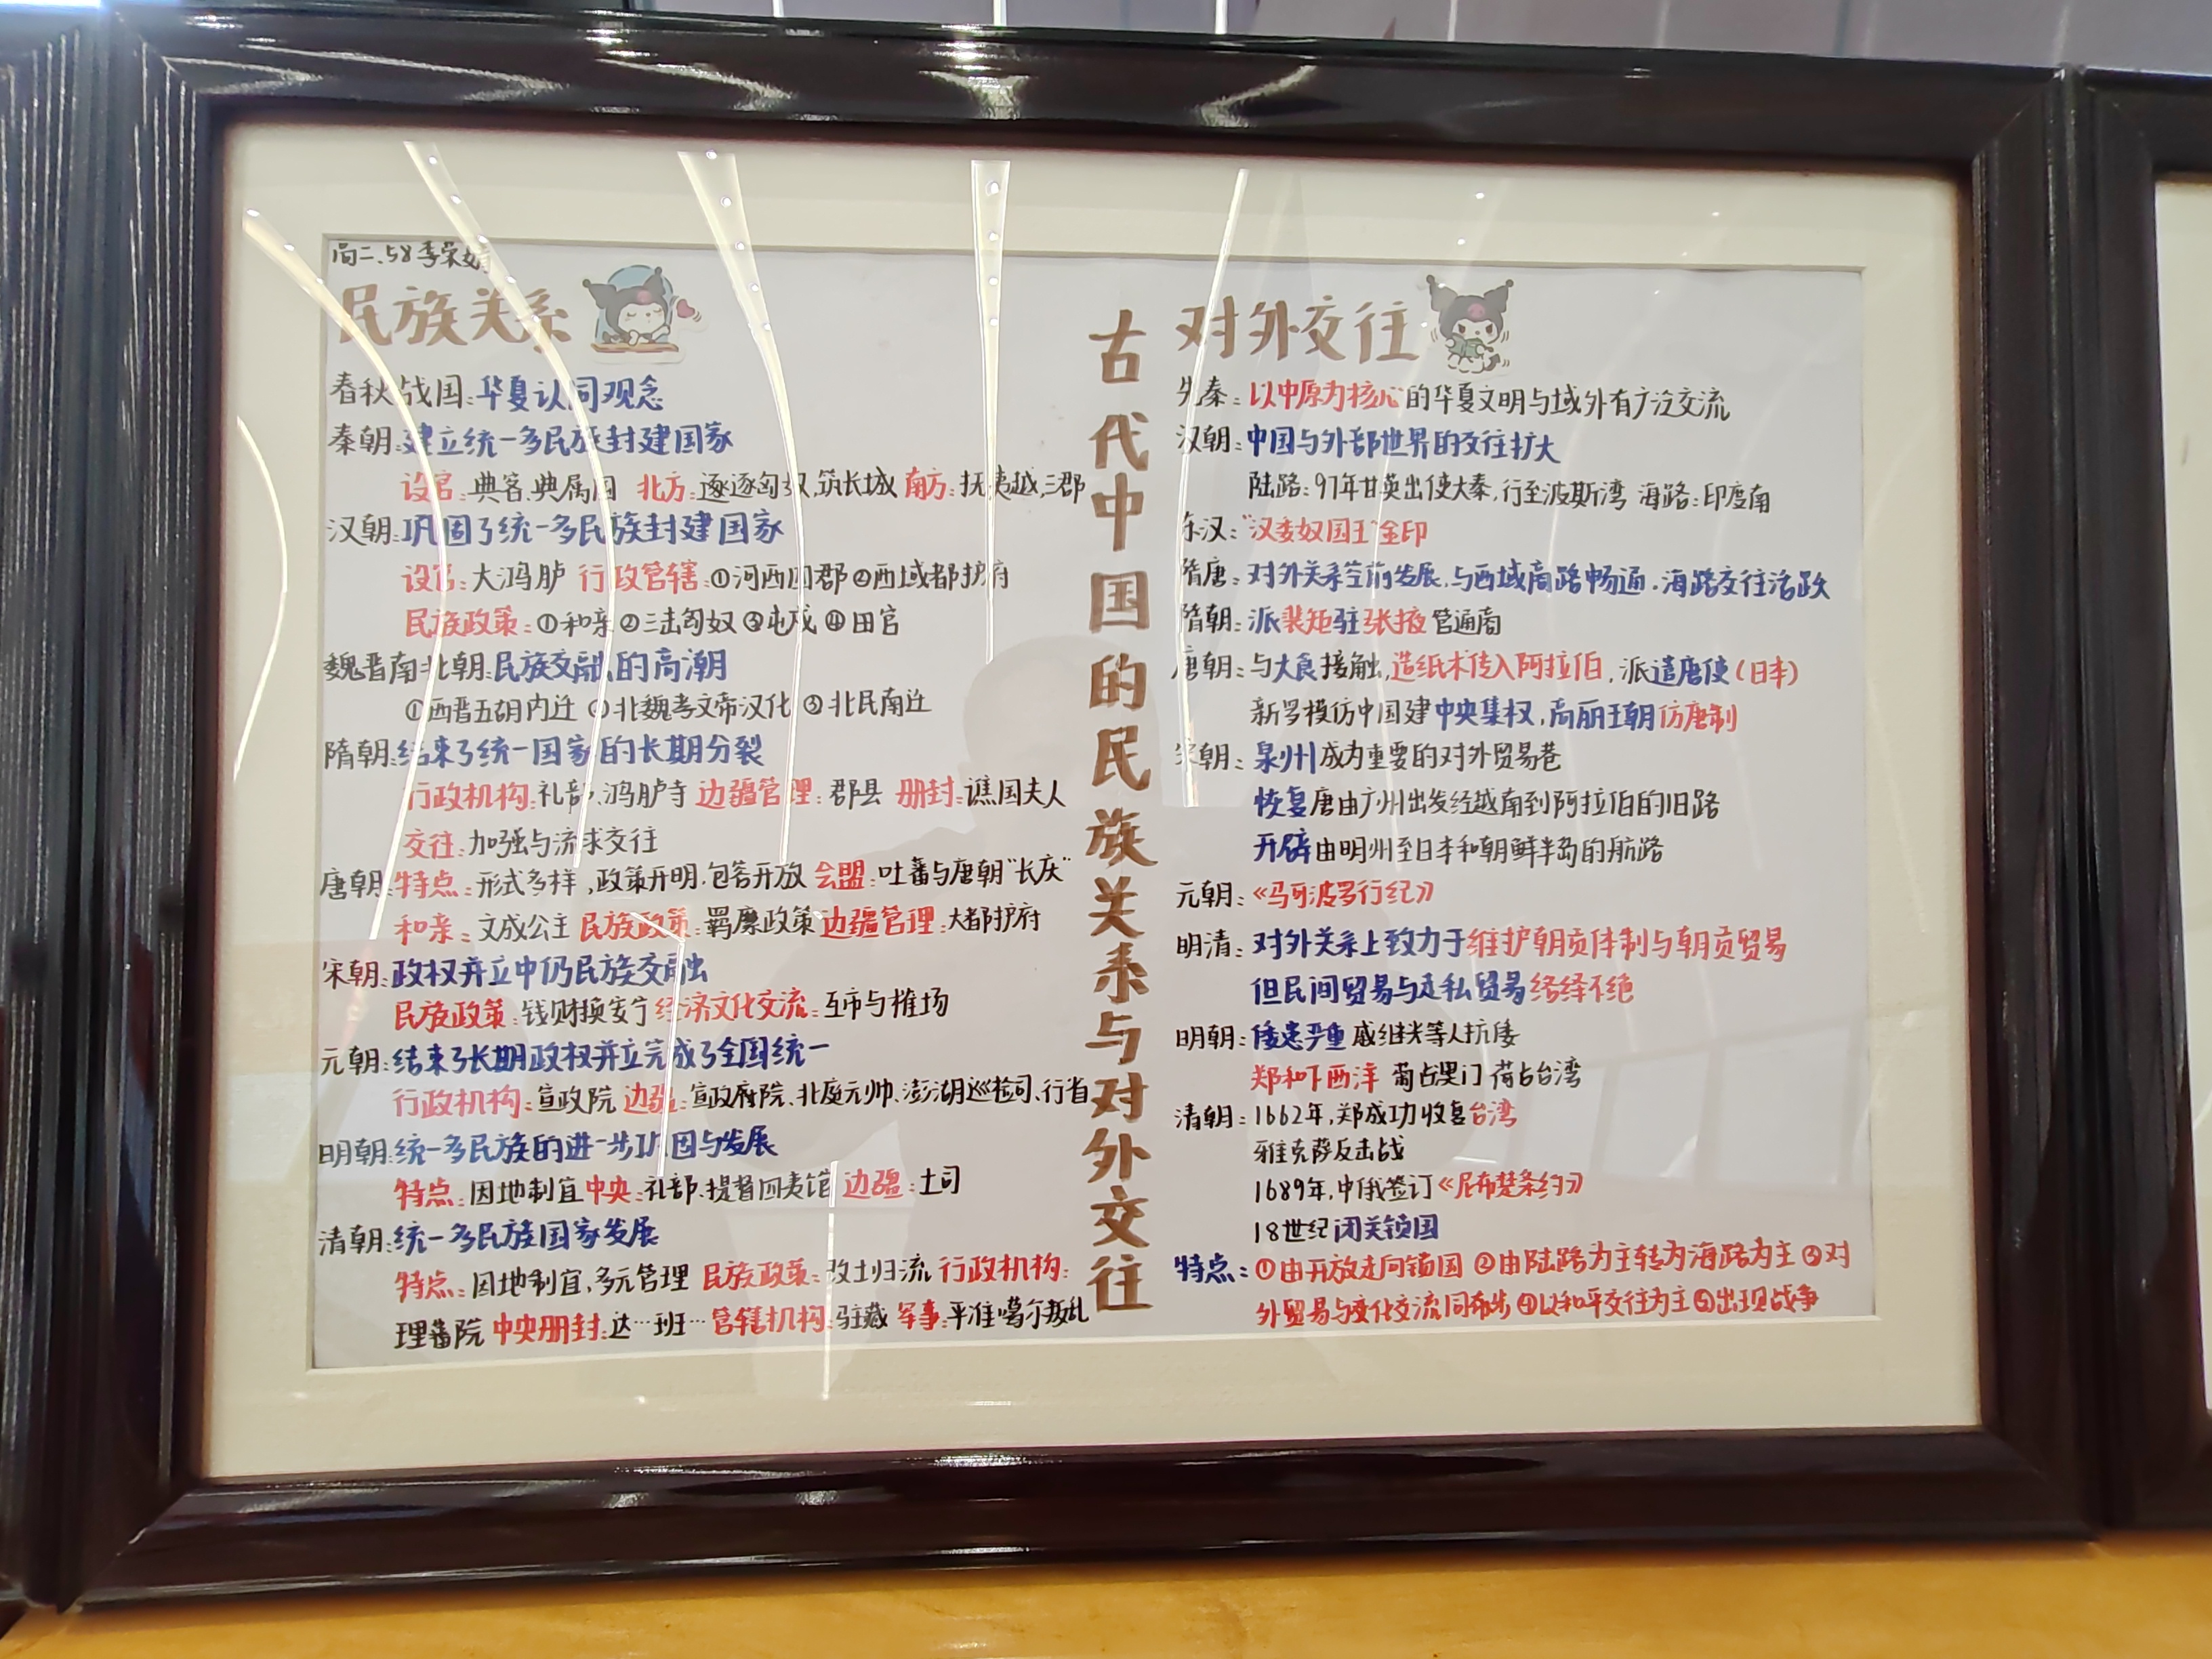 高二.58李荣娟
民族关系
春秋战国:华夏认同观念
秦朝:建立统一多民族封建国家
设官:典客、典属国 北方:逐逐匈奴,筑长城 南方:抚夷越,三郡
汉朝:巩固了统一多民族封建国家
设官:大鸿胪 行政管辖:①河西四郡②西域都护府
民族政策:①和亲②三击匈奴③屯戍④田官
魏晋南北朝:民族交融的高潮
①西晋五胡内迁 ②北魏孝文帝汉化 ③北民南迁
隋朝:结束了统一国家的长期分裂
行政机构:礼部、鸿胪寺 边疆管理:郡县 册封:谯国夫人
交往:加强与流求交往
唐朝:特点:形式多样,政策开明,包容开放 会盟:吐蕃与唐朝"长庆"
和亲:文成公主 民族政策:羁縻政策 边疆管理:大都护府
宋朝:政权并立中仍民族交融
民族政策:钱财换安宁 经济文化交流:互市与榷场
元朝:结束了长期政权并立完成了全国统一
行政机构:宣政院 边疆:宣政府院、北庭元帅、澎湖巡检司、行省
明朝:统一多民族的进一步巩固与发展
特点:因地制宜 中央:礼部、提督四夷馆 边疆:土司
清朝:统一多民族国家发展
特点:因地制宜,多元管理 民族政策:改土归流 行政机构:
理番院 中央册封:达…班… 管辖机构:驻藏 军事:平准噶尔叛乱
古代中国的民族关系与对外交往
对外交往
先秦:以中原为核心的华夏文明与域外有广泛交流
汉朝:中国与外部世界的交往扩大
陆路:97年甘英出使大秦,行至波斯湾 海路:印度南
东汉:"汉委奴国王"金印
隋唐:对外关系空前发展,与西域商路畅通.海路交往活跃
隋朝:派裴矩驻张掖管通商
唐朝:与大食接触,造纸术传入阿拉伯,派遣唐使(日本)
新罗模仿中国建中央集权,高丽王朝仿唐制
宋朝:泉州成为重要的对外贸易巷
恢复唐由广州出发经越南到阿拉伯的旧路
开辟由明州至日本和朝鲜半岛的航路
元朝:《马可波罗行纪》
明清:对外关系上致力于维护朝贡体制与朝贡贸易
但民间贸易与走私贸易络绎不绝
明朝:倭患严重 戚继光等人抗倭
郑和下西洋 葡占澳门 荷占台湾
清朝:1662年,郑成功收复台湾
雅克萨反击战
1689年,中俄签订《尼布楚条约》
18世纪闭关锁国
特点:①由开放走向锁国 ②由陆路为主转为海路为主 ③对
外贸易与文化交流同布步 ④以和平交往为主 ⑤出现战争